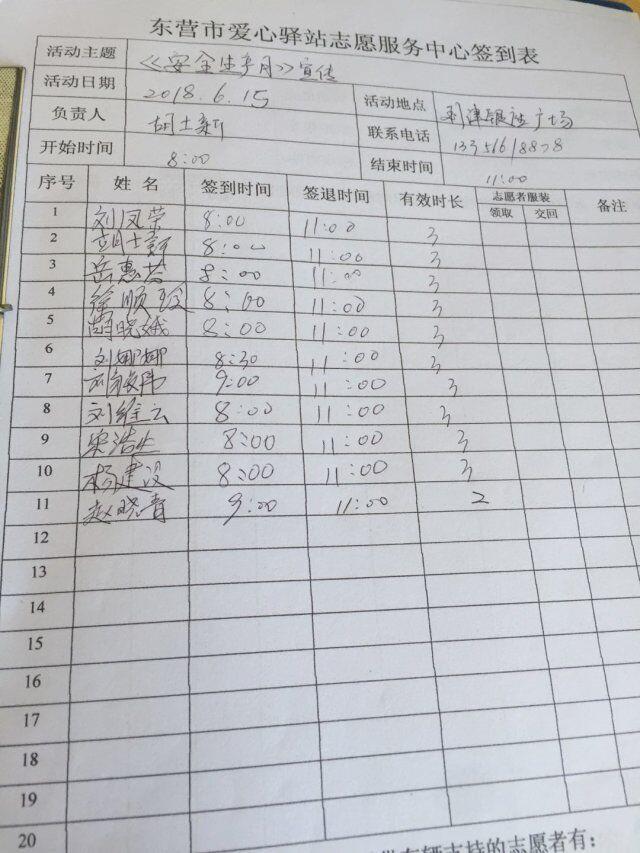 东营市爱心驿站志愿服务中心签到表
活动主题 《安全生产月》宣传
活动日期 2018.6.15 活动地点 利津银座广场
负责人 胡士新 联系电话
开始时间 8:00 结束时间 11:00
序号 姓名 签到时间 签退时间 有效时长 志愿者服装 备注
领取 交回
1 刘凤荣 8:00 11:00 3
2 胡士新 8:00 11:00 3
3 岳惠 8:00 11:00 3
4 徐顺 8:00 11:00 3
5 胡晓娥 8:00 11:00 3
6 刘娜娜 8:30 11:00 3
7 9:00 11:00 3
8 刘维云 8:00 11:00 3
9 宋浩 8:00 11:00 3
10 杨建设 8:00 11:00 3
11 赵晓青 9:00 11:00 2
12
13
14
15
16
17
18
19
20
车辆支持的志愿者有: